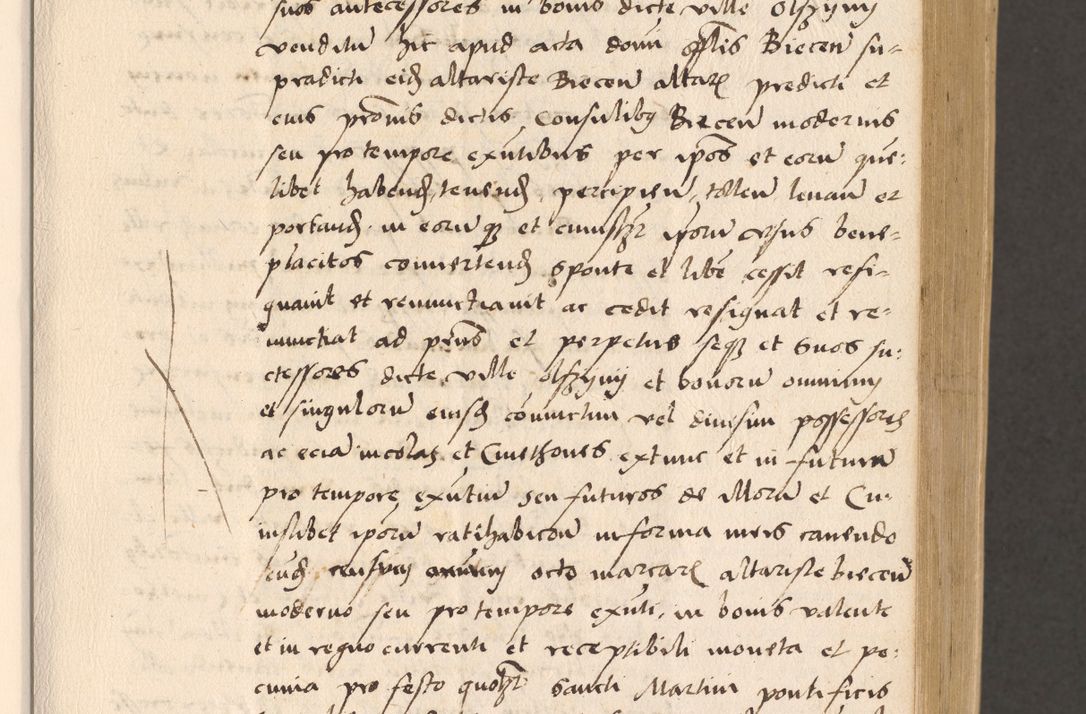 suos antecessores in bonis dicte ville Olszyny
venditu hic apud acta domi Biecen su-
pradicti eid altariste Biecen altar predicti et
eius dictis Consulibus Biecen modernis
seu pro tempore exntibus per ipos et eoru que-
libet habend, tenend, percipien, tollen levan et
portand in eorum et ipsoru usus bene-
placitos convertend sponte et libe cessit resi-
gnavit et renunctiavit ac cedit resignat et re-
nunctiat ad pns et perpetue seque et suos su-
ctessores dicte ville Olszyny et bonoru omnium
et singuloru eiusd coniunctim vel divisim possessores
ac ecia incolas et Cmethones extunc et in futurum
pro tempore exntiu seu futuros de illoru et Cu-
iuslibet iporu ratihabicon in forma iuris cavendo
censum annuu octo marcar altariste biecen
moderno seu pro tempore exnti, in bonis valente
et in regno currenti et receptibili moneta et pe-
cunia pro festo quolibet Sancti Martini pontificis